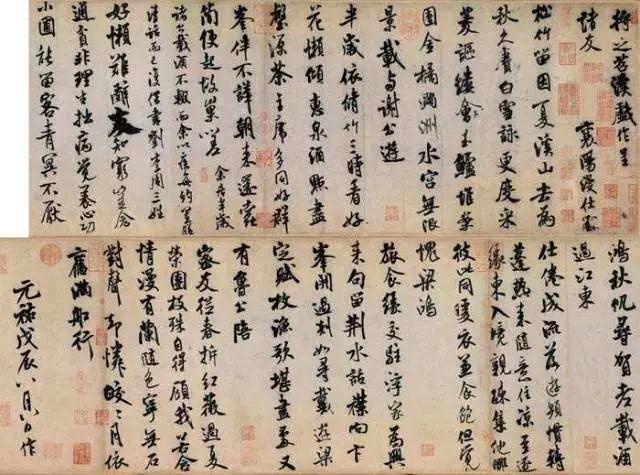 將之苕溪戲作呈
諸友
襄陽漫仕黻
松竹留因夏溪山去為
秋久賡白雪詠更度采
菱謳縷會玉鱸堆案
團金橘滿洲水宮無限
景載與謝公遊
半歲依修竹三時看好
花懶傾惠泉酒點盡
壑源茶主席多同好群
峯伴不譁朝來還蠹
簡便起故巢嗟
余居半歲
諸公載酒不輟而余以疾每約置膳
清話而已復借書劉李周三姓
好懶難辭友知窮豈念
通貧非理生拙病覺養心功
小圃能留客青冥不厭
鴻秋帆尋賀老載酒
過江東
仕倦成流落遊頻慣轉
蓬熱來隨意住涼至逐
緣東入境親疎集他鄉
彼此同暖衣兼食飽但覺
愧梁鴻
旅食緣交駐浮家為興
來句留荊水話襟向卞
峯開過剡如尋戴遊梁
定賦枚漁歌堪畫處又
有魯公陪
密友從春拆紅薇過夏
榮團枝殊自得顧我若含
情漫有蘭隨色寧無石
對聲却憐皎〻月依
舊滿船行
元祐戊辰八月八日作